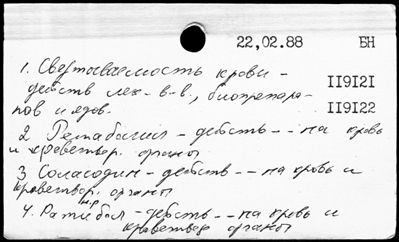 22,02.88 БН
1. Свертываемость крови -
действ лек. в-в., биопрепара- II9I2I
тов и ядов. II9I22
2. Ретаболил - действ - - на кровь
и кроветвор. органы
3. Соласодин - действ - - на кровь и
кроветвор. органы
4. - действ - - на кровь и
кроветвор. органы